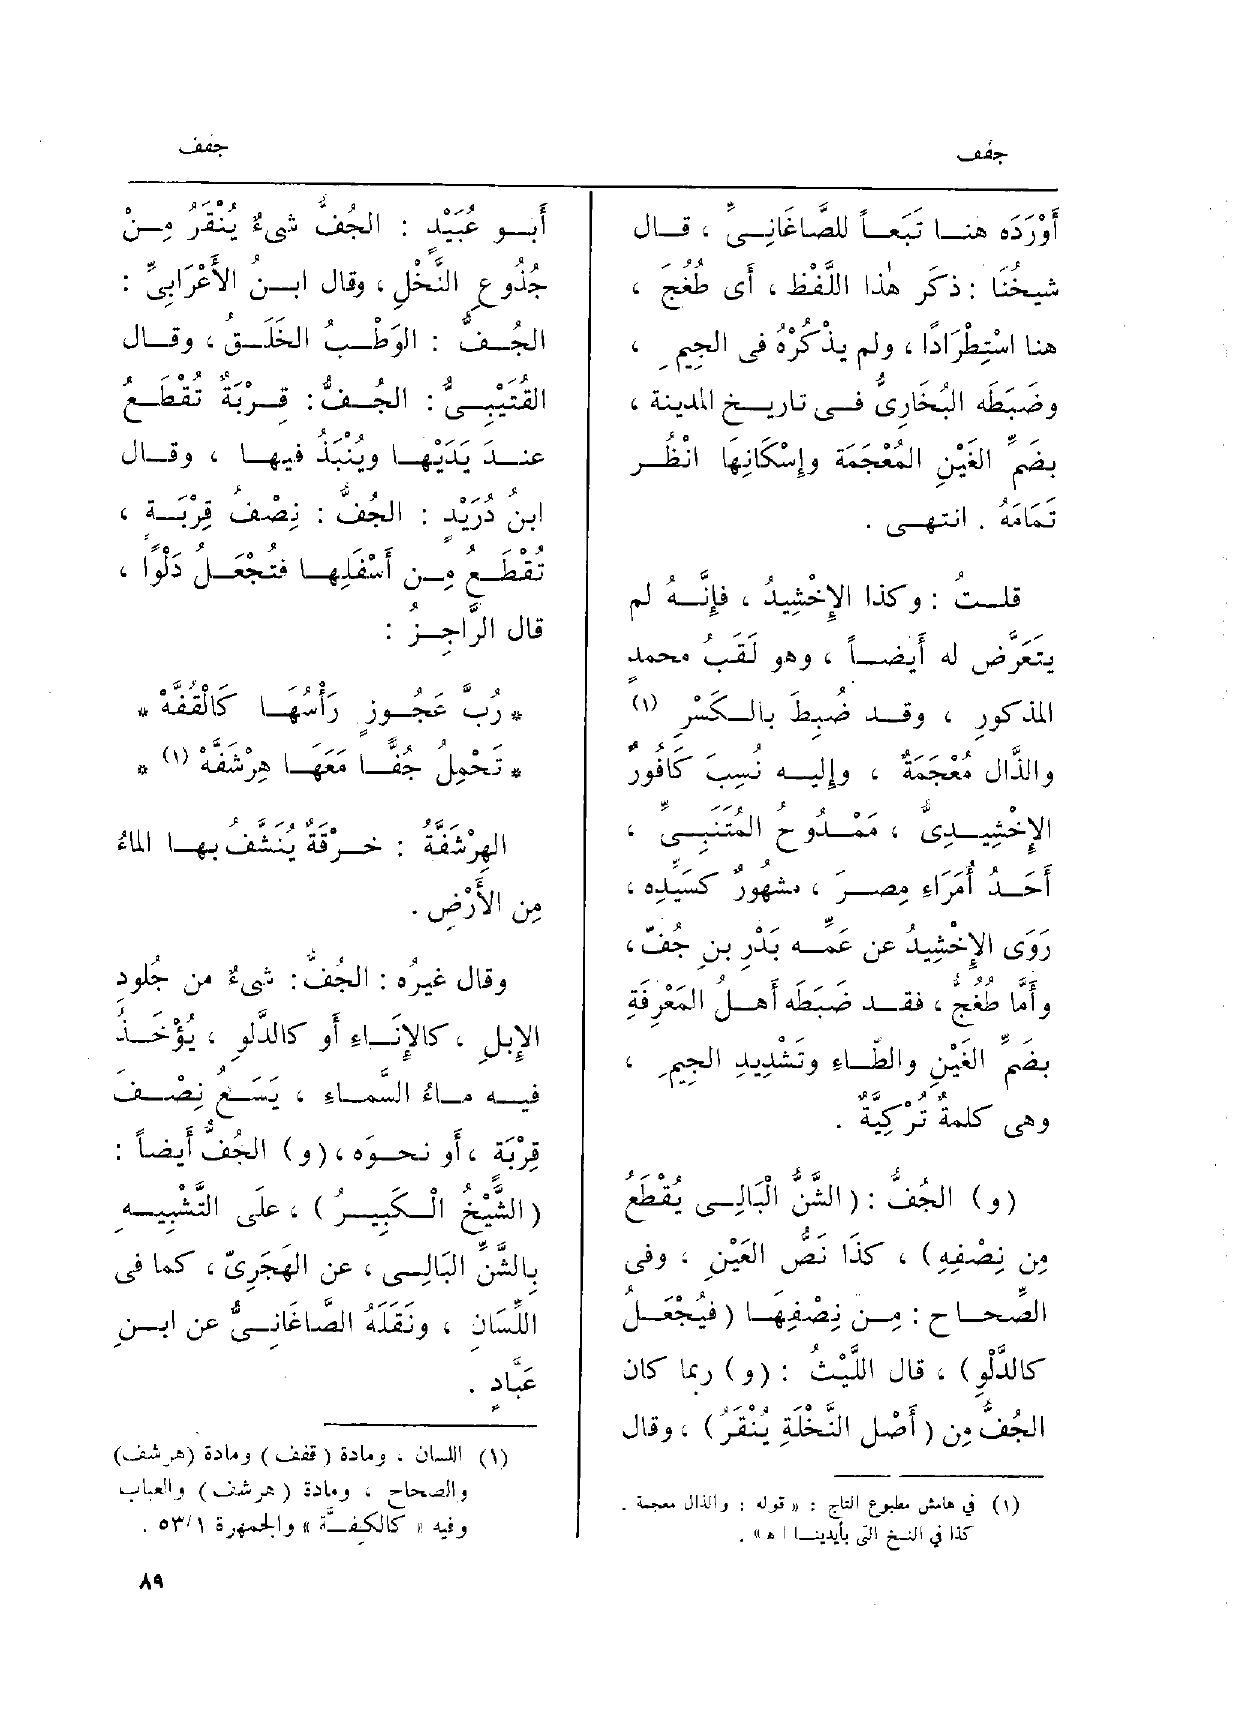 جفف
جفف
أَوْرَدَه هنا تَبَعاً للصَّاغَانِىِّ ، قال
شيخُنَا : ذكَر هٰذا اللَّفْظ ، أى طُغُج ،
هنا اسْتِطْرَادًا ، ولم يذْكُرْهُ فى الجِيمِ ،
وضَبَطَه البُخَارِىُّ فى تاريخ المدينة ،
بضَمِّ الغَيْنِ المُعْجَمَة وإِسْكَانِهَا انْظُر
تَمَامَهُ . انتهى .
قلتُ : وكذا الإِخْشِيدُ ، فإِنَّهُ لم
يَتَعَرَّض له أَيضاً ، وهو لَقَبُ محمدٍ
المذكورِ ، وقد ضُبِطَ بالكَسْرِ (١)
والذَّال مُعْجَمَةٌ ، وإليه نُسِبَ كَافُورٌ
الإِخْشِيدِىُّ ، مَمْدُوح المُتَنَبِّىِّ ،
أَحَدُ أُمَرَاءِ مِصرَ ، مشهورٌ كسَيِّدِه ،
رَوَى الإِخْشِيدُ عن عَمِّه بَدْرِ بنِ جُفّ ،
وأَمَّا طُغُجُّ ، فقد ضَبَطَه أَهلُ المَعْرِفَةِ
بضَمِّ الغَيْنِ والطَّاءِ وتَشْدِيدِ الجِيمِ ،
وهى كلمةٌ تُرْكِيَّةٌ .
(و) الجُفُّ : (الشَّنُّ الْبَالِى يُقْطَعُ
مِن نِصْفِهِ) ، كذَا نَصُّ العَيْنِ ، وفى
الصِّحاح : مِن نِصْفِها (فيُجْعَلُ
كالدَّلْوِ) ، قال اللَّيْثُ : (و) ربما كان
الجُفُّ مِن (أَصْلِ النَّخْلَةِ يُنْقَرُ) ، وقال
(١) في هامش مطبوع التاج : « قوله : والذال معجمة .
كذا في النسخ التى بأيدينا اه » .
أَبو عُبَيْدٍ : الجُفُّ شىءٌ يُنْقَرُ مِنْ
جُذُوعِ النَّخْلِ ، وقال ابنُ الأَعْرَابِىِّ :
الجُفُّ : الوَطْبُ الخَلَقُ ، وقال
القُتَيْبِىُّ : الجُفُّ : قِرْبَةٌ تُقْطَعُ
عندَ يَدَيْهَا ويُنْبَذُ فيها ، وقال
ابنُ دُرَيْدٍ : الجُفُّ : نِصْفُ قِرْبَةٍ ،
تُقْطَعُ مِن أَسْفَلِها فتُجْعَلُ دَلْوًا ،
قال الرَّاجِزُ :
* رُبَّ عَجُوزٍ رَأْسُهَا كَالْقُفَّهْ *
* تَحْمِلُ جُفًّا مَعَهَا هِرْشَفَّهْ (١) *
الهِرْشَفَّةُ : خِرْقَةٌ يُنَشَّفُ بها الماءُ
مِن الأَرْضِ .
وقال غيرُه : الجُفُّ : شىءٌ من جُلودِ
الإِبِلِ ، كالإِنَاءِ أو كالدَّلْوِ ، يُؤْخَذُ
فيه ماءُ السَّماءِ ، يَسَعُ نِصْفَ
قِرْبَة ، أَو نحوَه ، (و) الجُفُّ أَيضاً :
(الشَّيْخُ الْكَبِيرُ) ، علَى التَّشْبِيهِ
بِالشَّنِّ البَالِى ، عن الهَجَرِىّ ، كما فى
اللِّسَانِ ، ونَقَلَهُ الصَّاغَانِىُّ عن ابنِ
عَبَّادٍ .
(١) اللسان ، ومادة (قفف) ومادة (هرشف)
والصحاح ، ومادة (هرشف) والعباب
وفيه « كالكِفَّة » والجمهرة ٥٣/١ .
٨٩